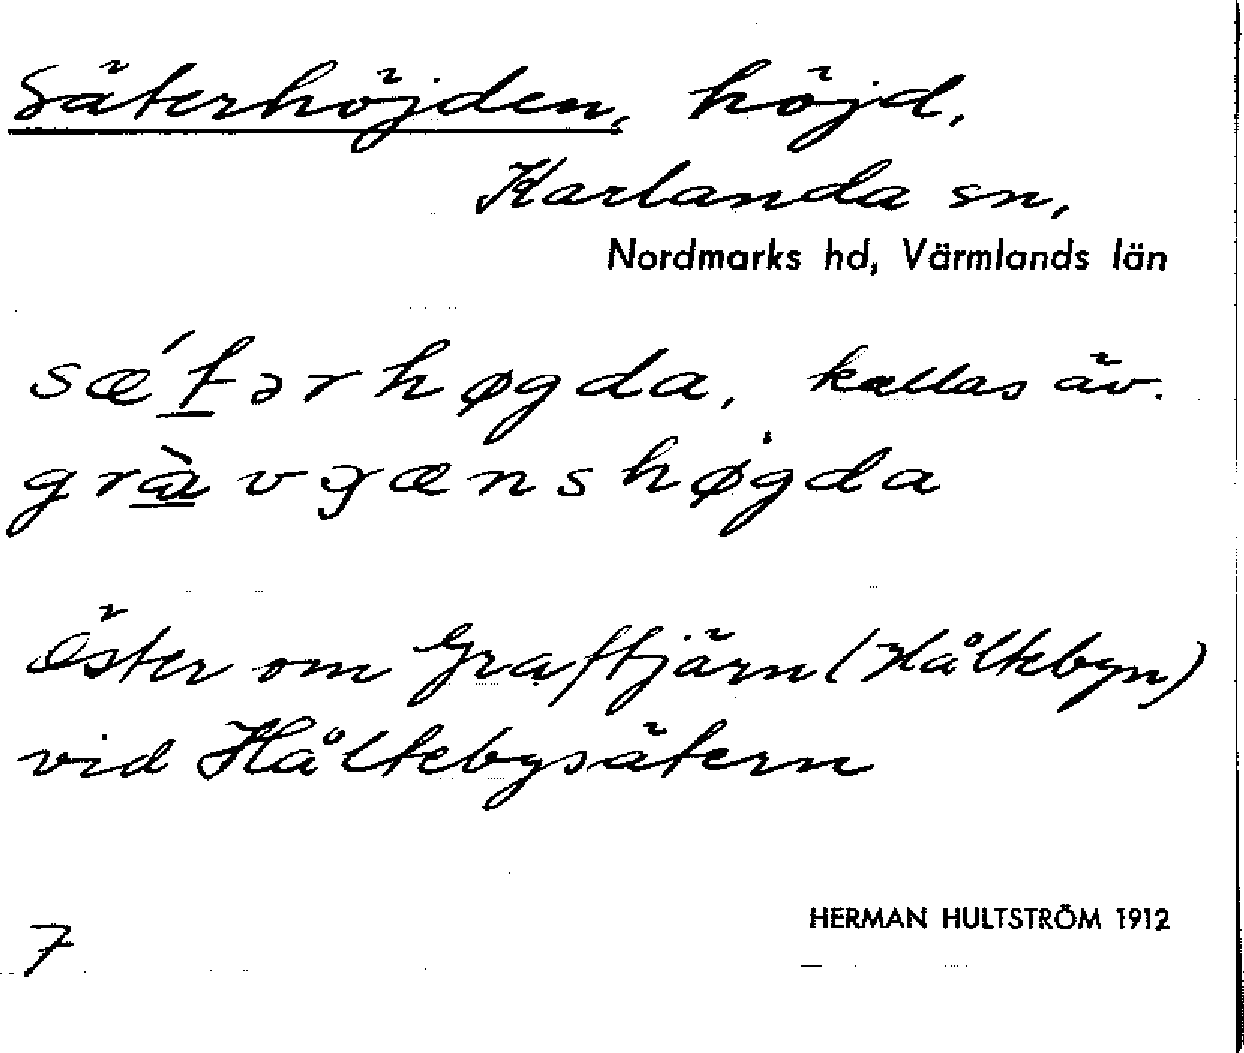 Säterhöjden, höjd,
Karlanda sn,
Nordmarks hd, Värmlands län
sǽtərhøgda, kallas äv.
gràvjænshøgda
Öster om Graftjärn (Håltebyn)
vid Håltebysätern
HERMAN HULTSTRÖM 1912
7